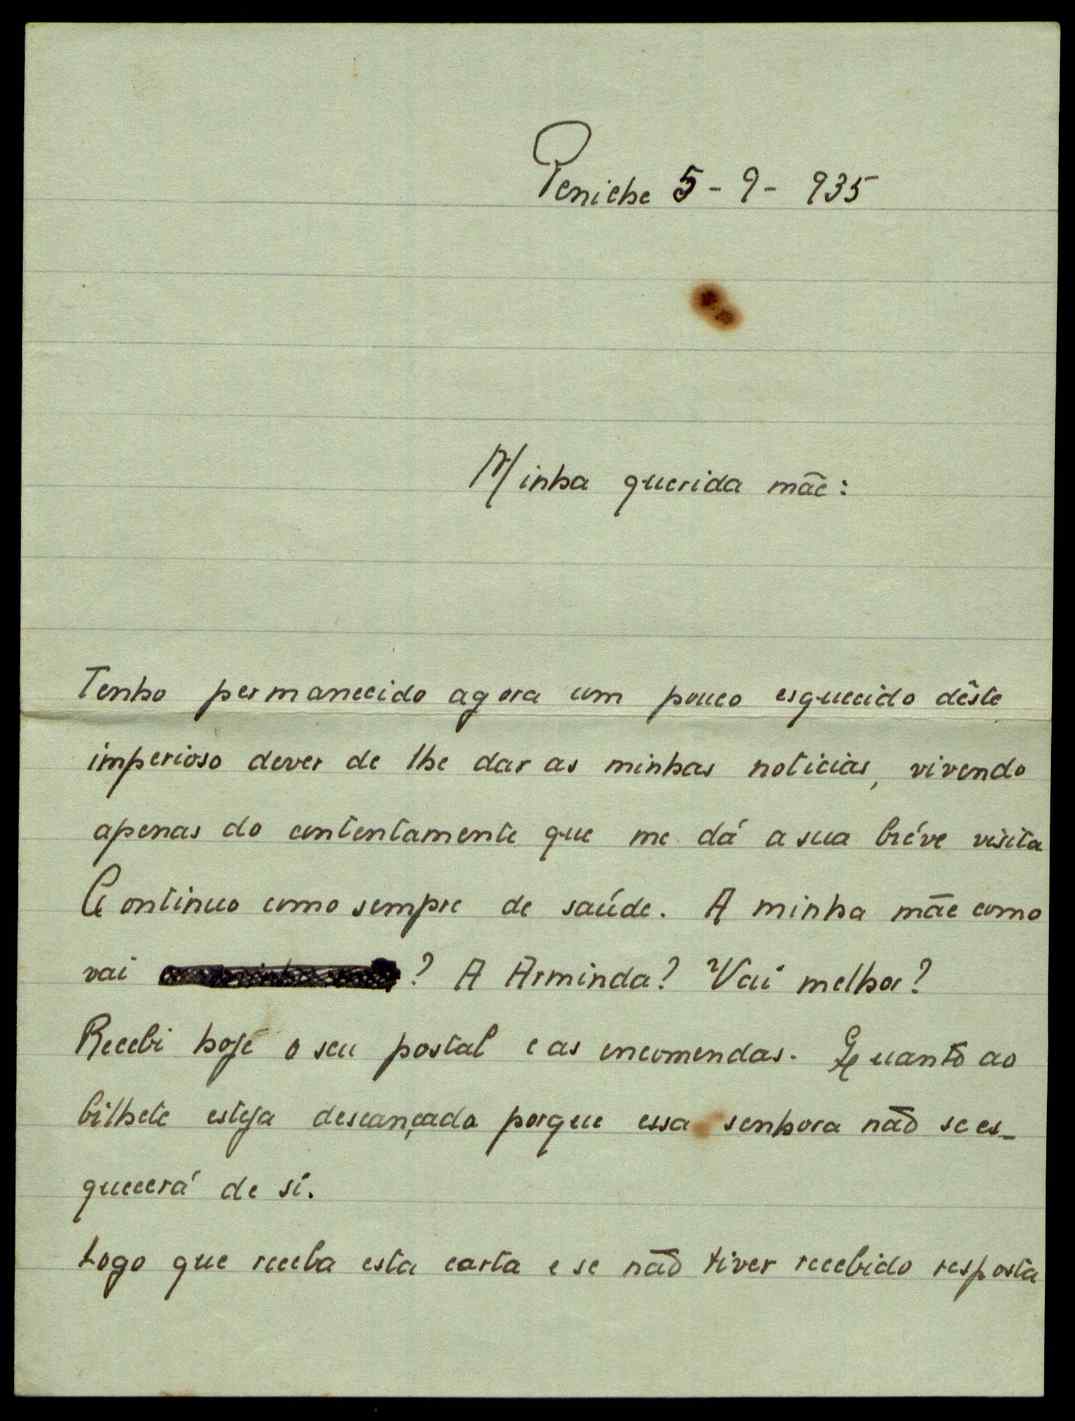 Peniche 5 - 9 - 935
Minha querida mãe:
Tenho permanecido agora um pouco esquecido dêste
imperioso dever de lhe dar as minhas noticias, vivendo
apenas do contentamente que me dá a sua bréve visita
Continuo como sempre de saúde. A minha mãe como
vai ? A Arminda? Vai melhor?
Recebi hoje o seu postal e as encomendas. Quanto ao
bilhete esteja descançada porque essa senhora não se es-
quecerá de si.
Logo que receba esta carta e se não tiver recebido resposta